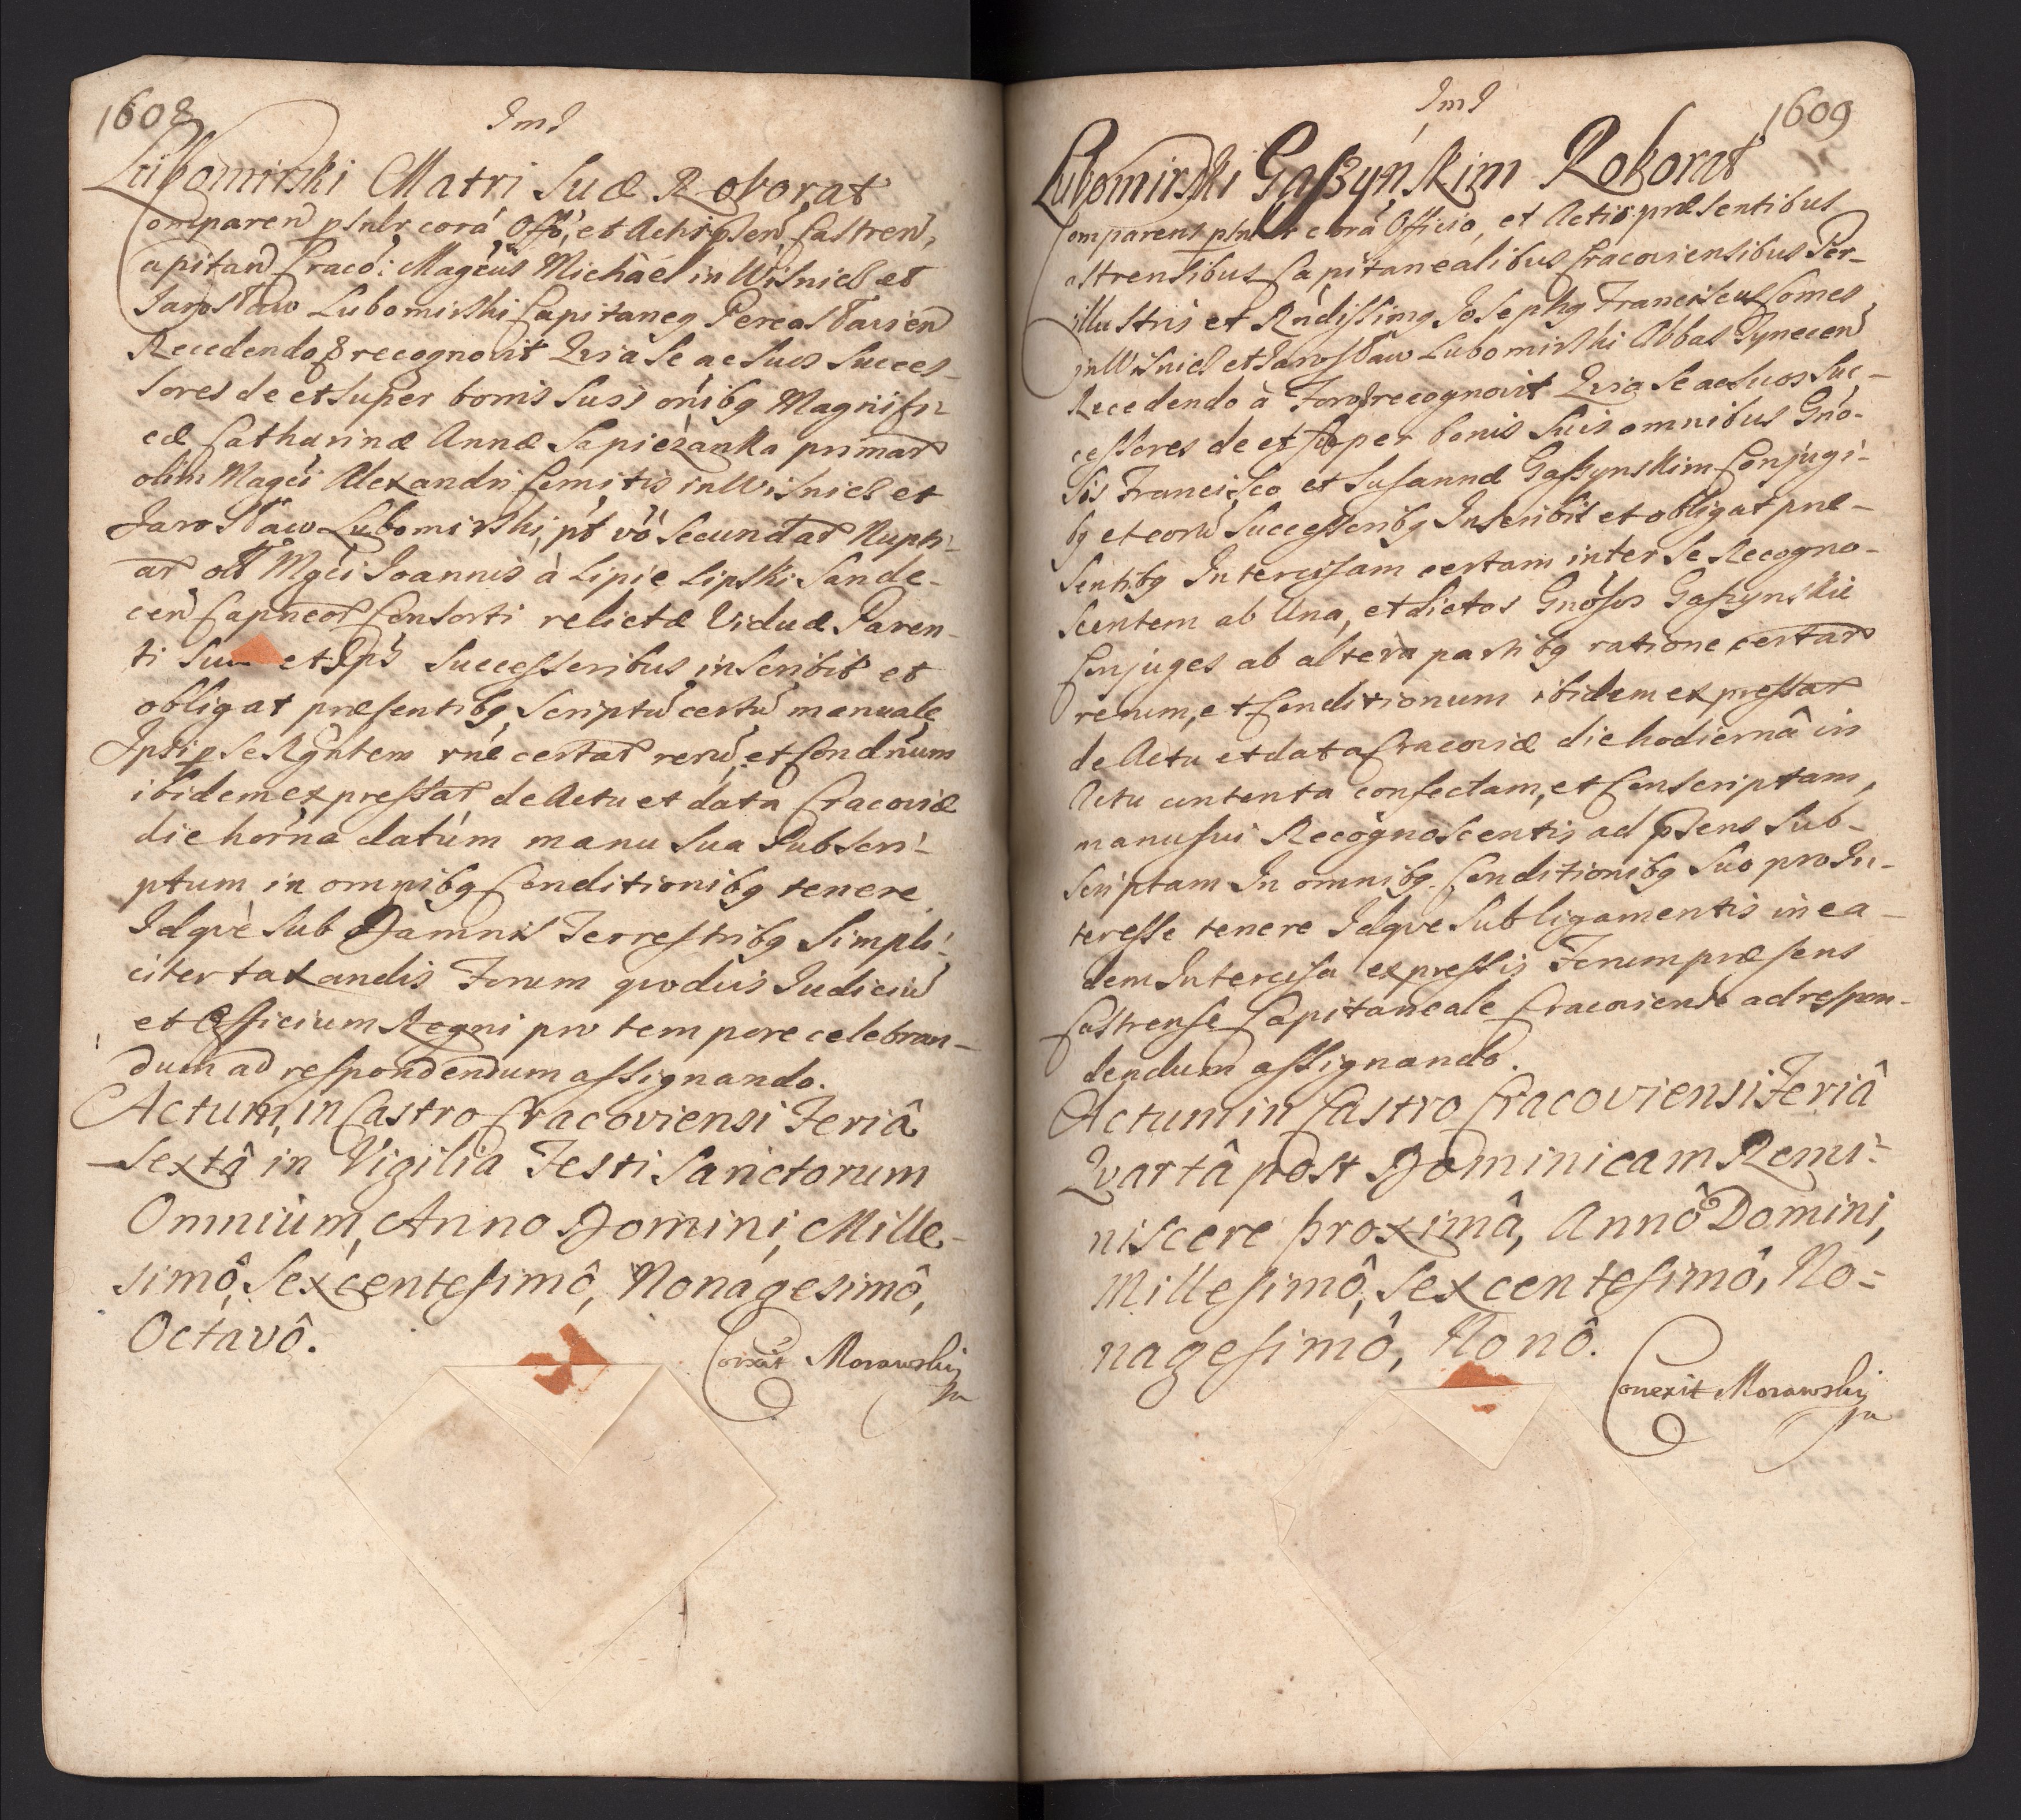 1608
JmJ
Lubomirski Matri Suæ Roborat
Comparen psnlr corá Offo, et Actis psen Castren,
Capitan Craco: Magcus Michael in Wisnicz et
Jarosław Lubomirski Capitaneg Pereasławien
Recedendo recognovit Qvia Se ac Suos Succes-
sores de et super bonis Suis onibg Magnifi-
cæ Catharinæ Annæ Sapiezanka primar
olim Magci Alexandri Comitis in Wisnicz et
Jarosław Lubomirski, pt vo Secundar Nupti-
ar olim Mgci Joannis à Lipie Lipski Sande-
cen Capneor Consorti relictæ Viduæ Paren-
ti Suæ et Successoribus inscribit et
obligat præsentibg Scriptu certu manuale
Ipsi p Se Rgntem rne certar reru, et Condnum
ibidem expressar de Actu et data Cracoviæ
die horna datúm manu Sua Subscri-
ptum in omnibg Conditionibg tenere
Idqve Sub Damnis Terrestribg Simpli-
citer taxandis Forum qvodvis Judiciu
et Officium Regni pro tempore celebran-
dum ad respondendum assignando.
Actum in Castro Cracoviensi Feriâ
Sextâ in Vigilia Festi Sanctorum
Omnium, Anno Domini, Mille-
simô, Sexcentesimô, Nonagesimô,
Octavô.
Corexit Morawski
1609
JmJ
Lubomirski Gaszyńskim Roborat
Comparens psnlr corá Officio, et Actis præsentibus
Castrensibus Capitanealibus Cracoviensibus Per-
illustris et Rndissimg Josephg Franciscus Comes
in Wisnicz et Jarosław Lubomirski Abbas Tynecen
Recedendo à Foro recognovit Qvia Se ac Suos Suc-
cessores de et super bonis Suis omnibus Gno-
sis Francisco et Susannæ Gaszynskim Conjugi-
bg et eoru Successoribg Inscribit et obligat præ-
sentibg Intercisam certam inter Se Recogno-
scentem ab Una, et dictos Gnosos Gaszynskie
Conjuges ab altera partibg ratione certar
rerum, et Conditionum ibidem expressar
de Actu et data Cracoviæ die hodiernâ in
Actu contenta confectam, et Conscriptam,
manu sui Recognoscentis ad psens Sub-
scriptam In omnibg Conditionibg Suo pro In-
teresse tenere Idqve Sub ligamentis in ea-
dem Intercisa expressis Forum præsens
Castrense Capitaneale Cracoviense ad respon-
dendum assignando.
Actum in Castro Cracoviensi Feriâ
Qvartâ post Dominicam Remi-
niscere proximâ, Annô Domini,
Millesimô, Sexcentesimô, No-
nagesimô, Nonô.
Conexit Morawski